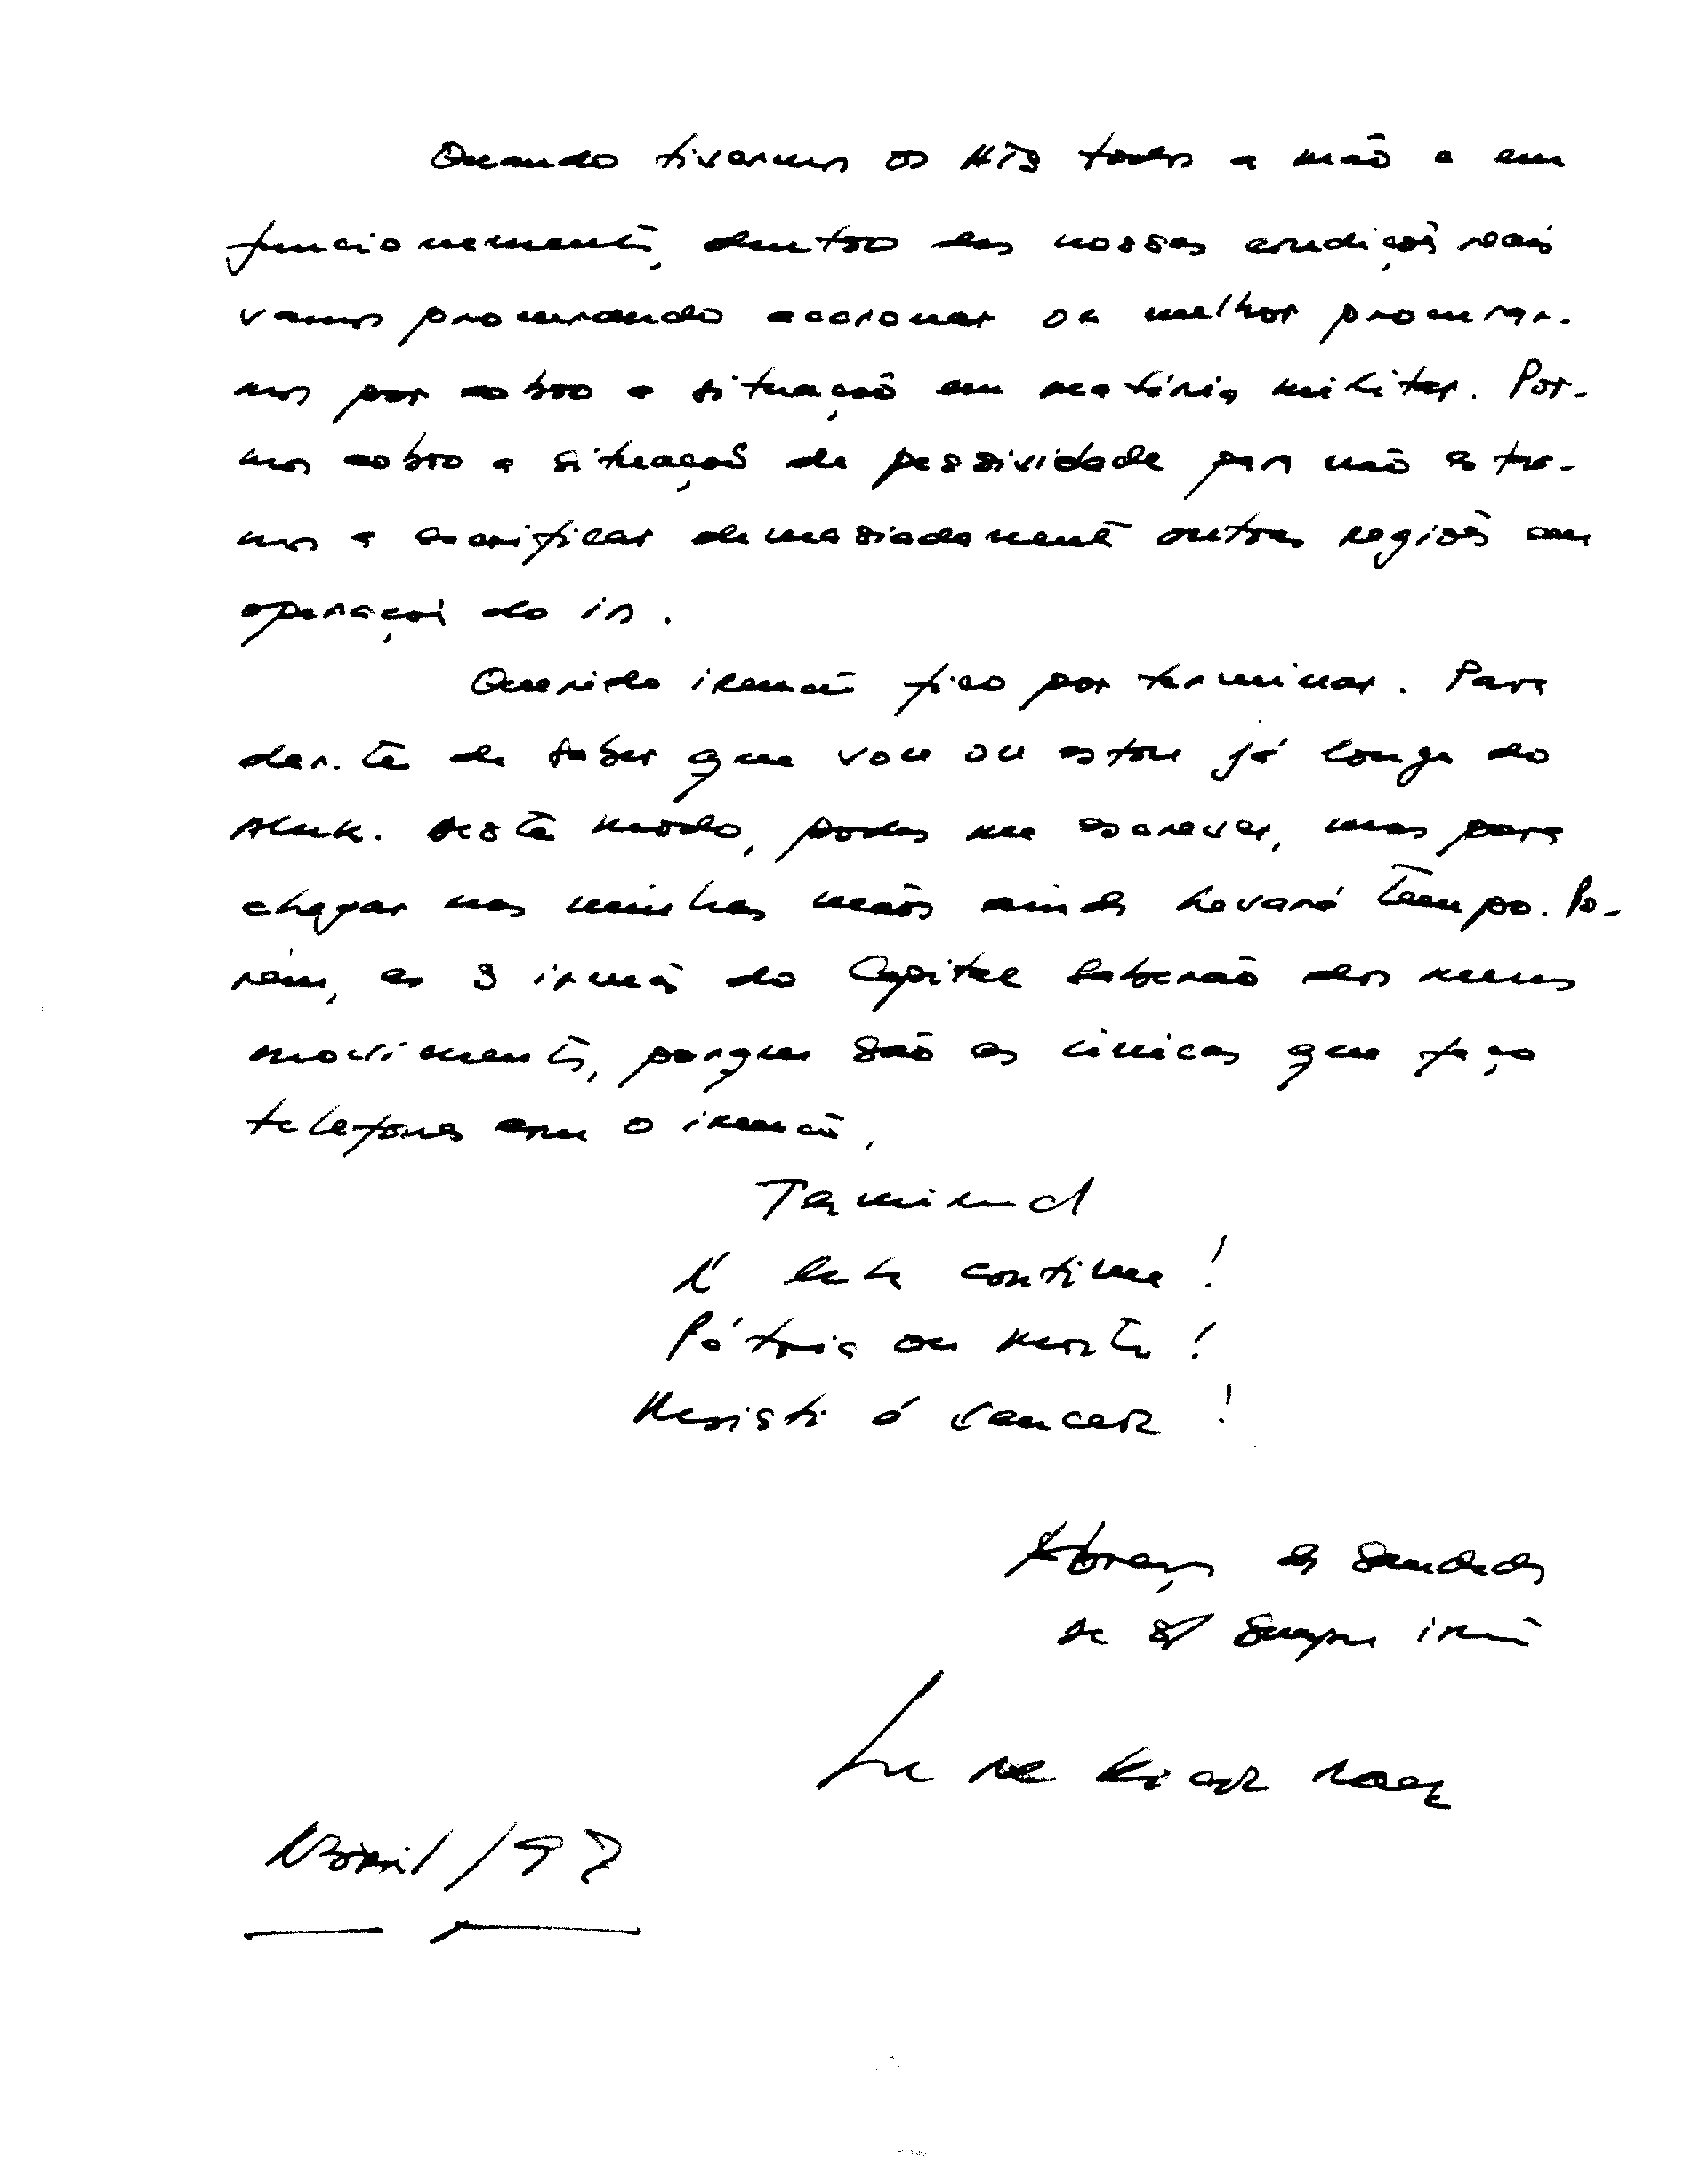 Quando tivermos os HTs todos a mão e em
funcionamento, dentro das nossas condições reais
vamos procurando accionar ou melhor procurar-
mos pôr cobro a situação em matéria militar. Por-
mos cobro a situação de passividade para não estar-
mos a sacrificar demasiadamente outras regiões em
operações do in.
Querido irmão fico por terminar. Para
dar-te de saber que vou ou estou já longe do
Aluk. Deste modo, podes me escrever, mas para
chegar nas minhas mãos ainda levará tempo. Po-
rém, as 3 irmãs do Capital saberão dos meus
movimentos, porque são as únicas que faço
telefones com o irmão.
Terminal
A luta continua!
Pátria ou Morte!
Resistir é vencer!
Abraços de saudades
de sempre irmão
Abril/97